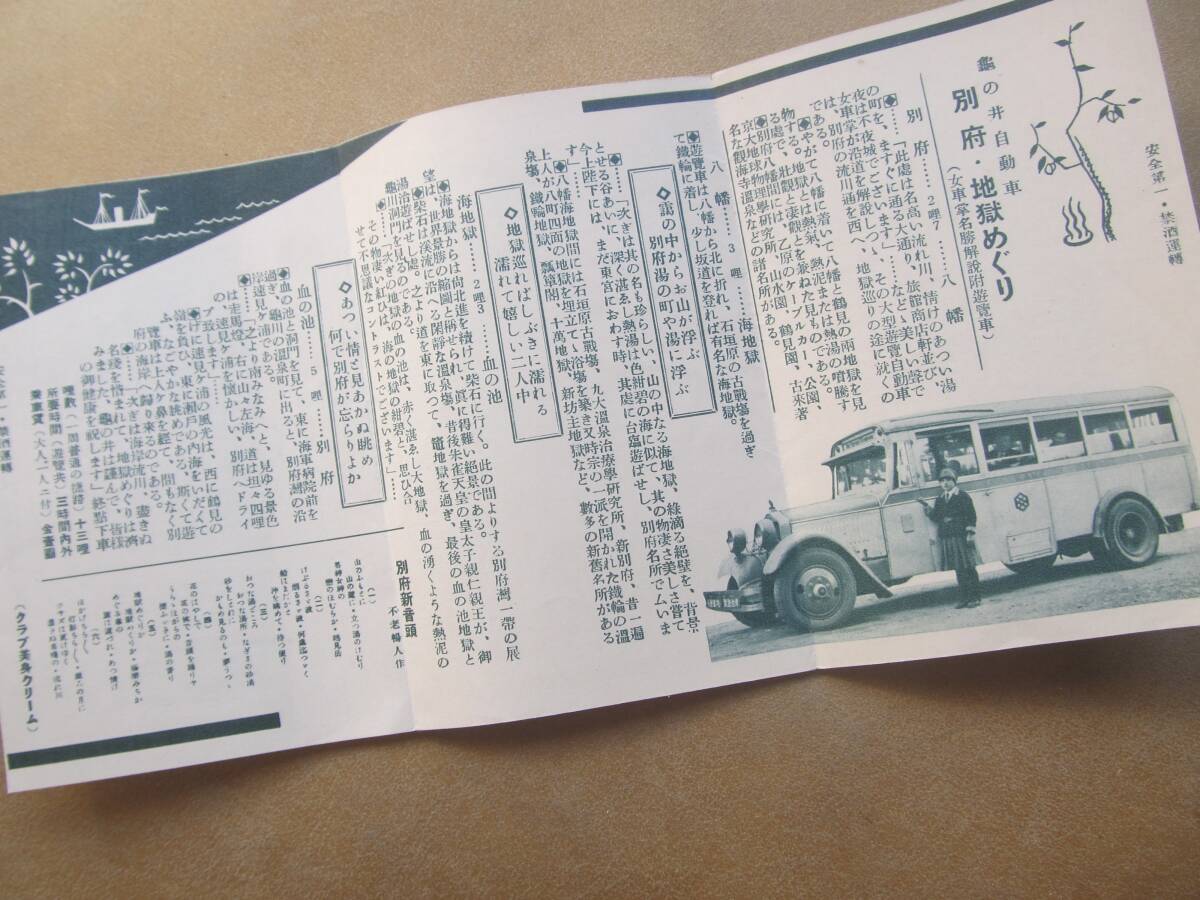 安全第一・禁酒運轉
龜の井自動車
別府・地獄めぐり
(女車掌名勝解說附遊覽車)
別府……2哩7……八幡
◆……「此處は名高い流れ川、情けのあつい湯
の町を、ますぐに通る大通り、旅館商店軒並び、
夜は不夜城でございます」……などゝ美しい聲で
女車掌が沿道を解說しつゝ、その大型遊覽自動車
は、別府の流川通を西へ、地獄巡りの途に就くの
である。
◆やがて八幡に着いて八幡と鶴見の兩地獄を見
物する。地獄とは熱氣、熱泥または熱湯の噴騰す
る處で、壯觀と凄觀とを兼ねた見ものである。
◆別府八幡間には、乙原のケーブルカー、公園、
京大地球物理學研究所、山水園、鶴見園、古來著
名な觀海寺溫泉などの諸名所がある。
八幡……3哩……海地獄
◆遊覽車は八幡から北に折れ、石垣原の古戰場を過ぎ
て鐵輪に着し、少し坂道を登れば有名な海地獄。
◇靄の中からお山が浮ぶ
別府湯の町や湯に浮ぶ
◆……「次ぎは其の名も珍らしい、山の中なる海地獄、綠滴る絕壁を、背景
とせる谷あいに、深く湛ゑし熱湯は色紺碧の海に似て、其の物凄さ美しさ嘗て
今上陛下には、まだ東宮におわす時、其處に台臨遊ばせし、別府名所でムいま
す」
◆八幡海地獄間には石垣原古戰場、九大溫泉治療學硏究所、新別府、昔一遍
上人が八町四面の地獄を埋立てゝ浴場を築き又時宗の一派を開かれた鐵輪の溫
泉場、鐵輪地獄、瓢簞閣、十萬地獄、新坊主地獄など、數多の新舊名所がある
◇地獄巡ればしぶきに濡れる
濡れて嬉しい二人中
海地獄……2哩3……血の池
◆海地獄からは尙北進を續けて、柴石に行く。此の間よりする別府灣一帶の展
望は、世界景勝の縮圖と稱せられ、眞に得難い絕景である。
◆柴石は溪流に沿へる閑靜な溫泉場、昔後朱雀天皇の皇太子親仁親王が、御
湯治遊ばせし處。之より道を東に取つて、竈地獄を過ぎ、最後の血の池地獄と
龜川洞門を見るのである。
◆……「次ぎの地獄の血の池は、赤く湛ゑし大地獄、血の湧くような熱泥の
その物凄い紅ひは、前の海の地獄の紺碧と、思ひ合
せて不思議なコントラストでございます」……
◇あつい情と見あかぬ眺め
何で別府が忘らりよか
血の池……5哩……別府
◆血の池と洞門を見て、東に海軍病院前を
過ぎ、龜川の溫泉町に出ると、別府灣の沿
岸速見ヶ浦である。
◆……「之より南みなみへと、見ゆる景色
は走馬燈、右に山々左海、道は坦々四哩
の、速見ヶ浦を懷かしい、別府へドライ
ブ致します」……
◆げに速見ヶ浦の風光は、西に鶴見の
嶺を負ひ、東に瀨戶の內海をいだくて
ふ、なごやかな眺めである。斯くて遊
覽車は上人ヶ鼻を經て、間もなく別
府の海岸へ歸り來るのである。
◆……「次ぎは海岸流川、盡きぬ
名殘を惜まれて、地獄めぐりは濟
みました、龜の井は謹んで、皆樣
の御健康を祝します」終點下車
哩數(一周普通の經路)十三哩
所要時間(遊覽共)三時間內外
乘車賃(大人一人ニ付)金壹圓
安全第一・禁酒運轉
別府新音頭
不老暢人作
(一)
山のふもとに
山の麓に・立つ湯のけむり
男神女神の
戀のほむらか・鶴見岳
(二)
船はまだかと
沖を眺めて・待つ便り
(三)
おつな湯どころ
おつな湯所・なぎさの砂湯
砂をしとねに
かもめ見るのも・夢うつゝ
(四)
(五)
地獄めぐりか
(六)
(クラブ美身クリーム)